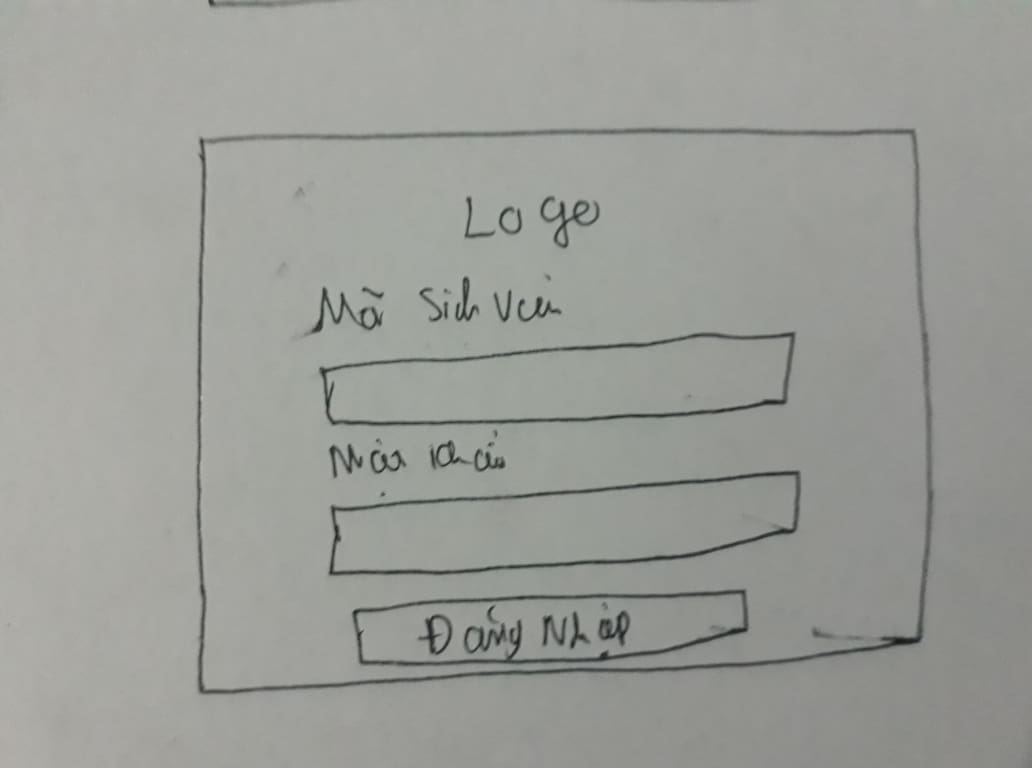 Logo
Mã sinh viên
Mật khẩu
Đăng Nhập